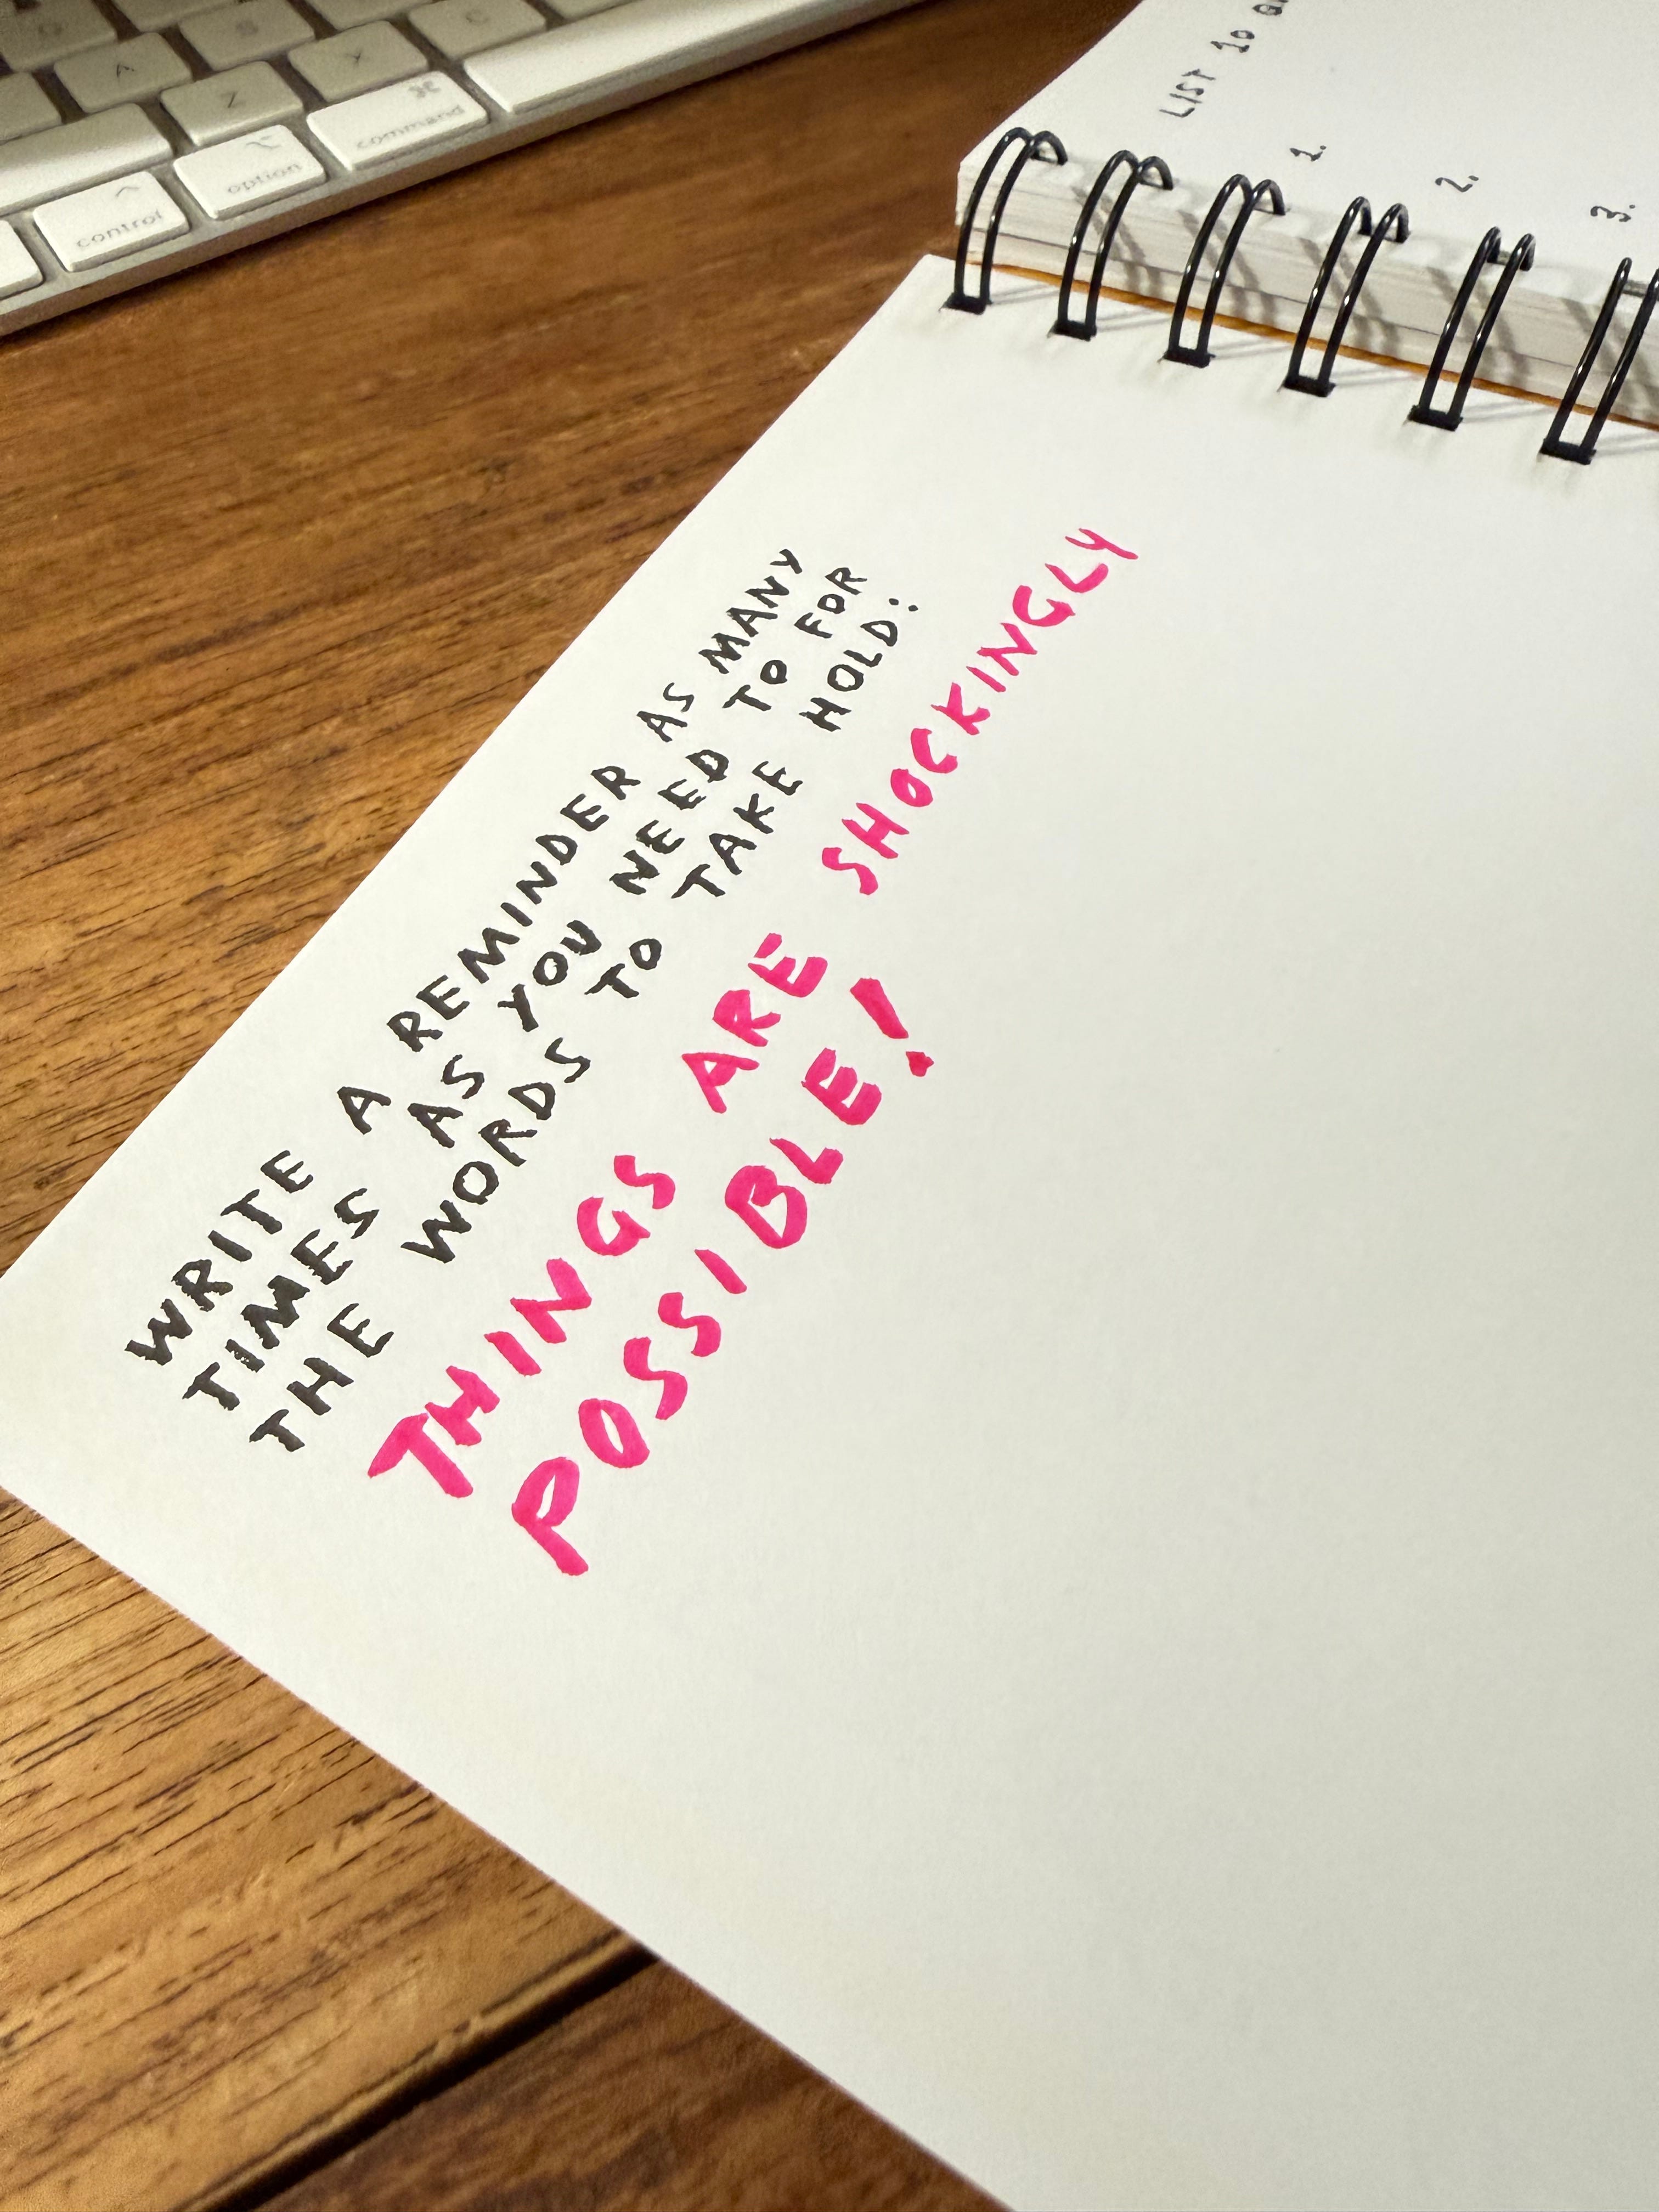 WRITE A REMINDER AS MANY
TIMES AS YOU NEED TO FOR
THE WORDS TO TAKE HOLD:
THINGS ARE SHOCKINGLY
POSSIBLE!
LIST 10
1.
2.
3.
A
S
Z
X
C
control
option
command